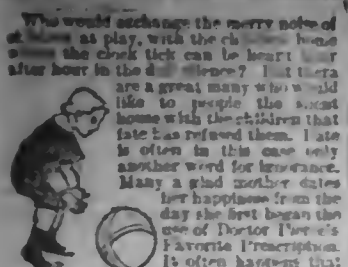 Who would exchange the merry noise of
at play, with the
the clock tick can be heard
after hour in the
are a great many who would
like to people the silent
house with the children that
fate has refused them. Fate
is often in this case only
another word for ignorance.
Many a glad mother dates
her happiness from the
day she first began the
use of Doctor Pierce's
Favorite Prescription.
It often happens that